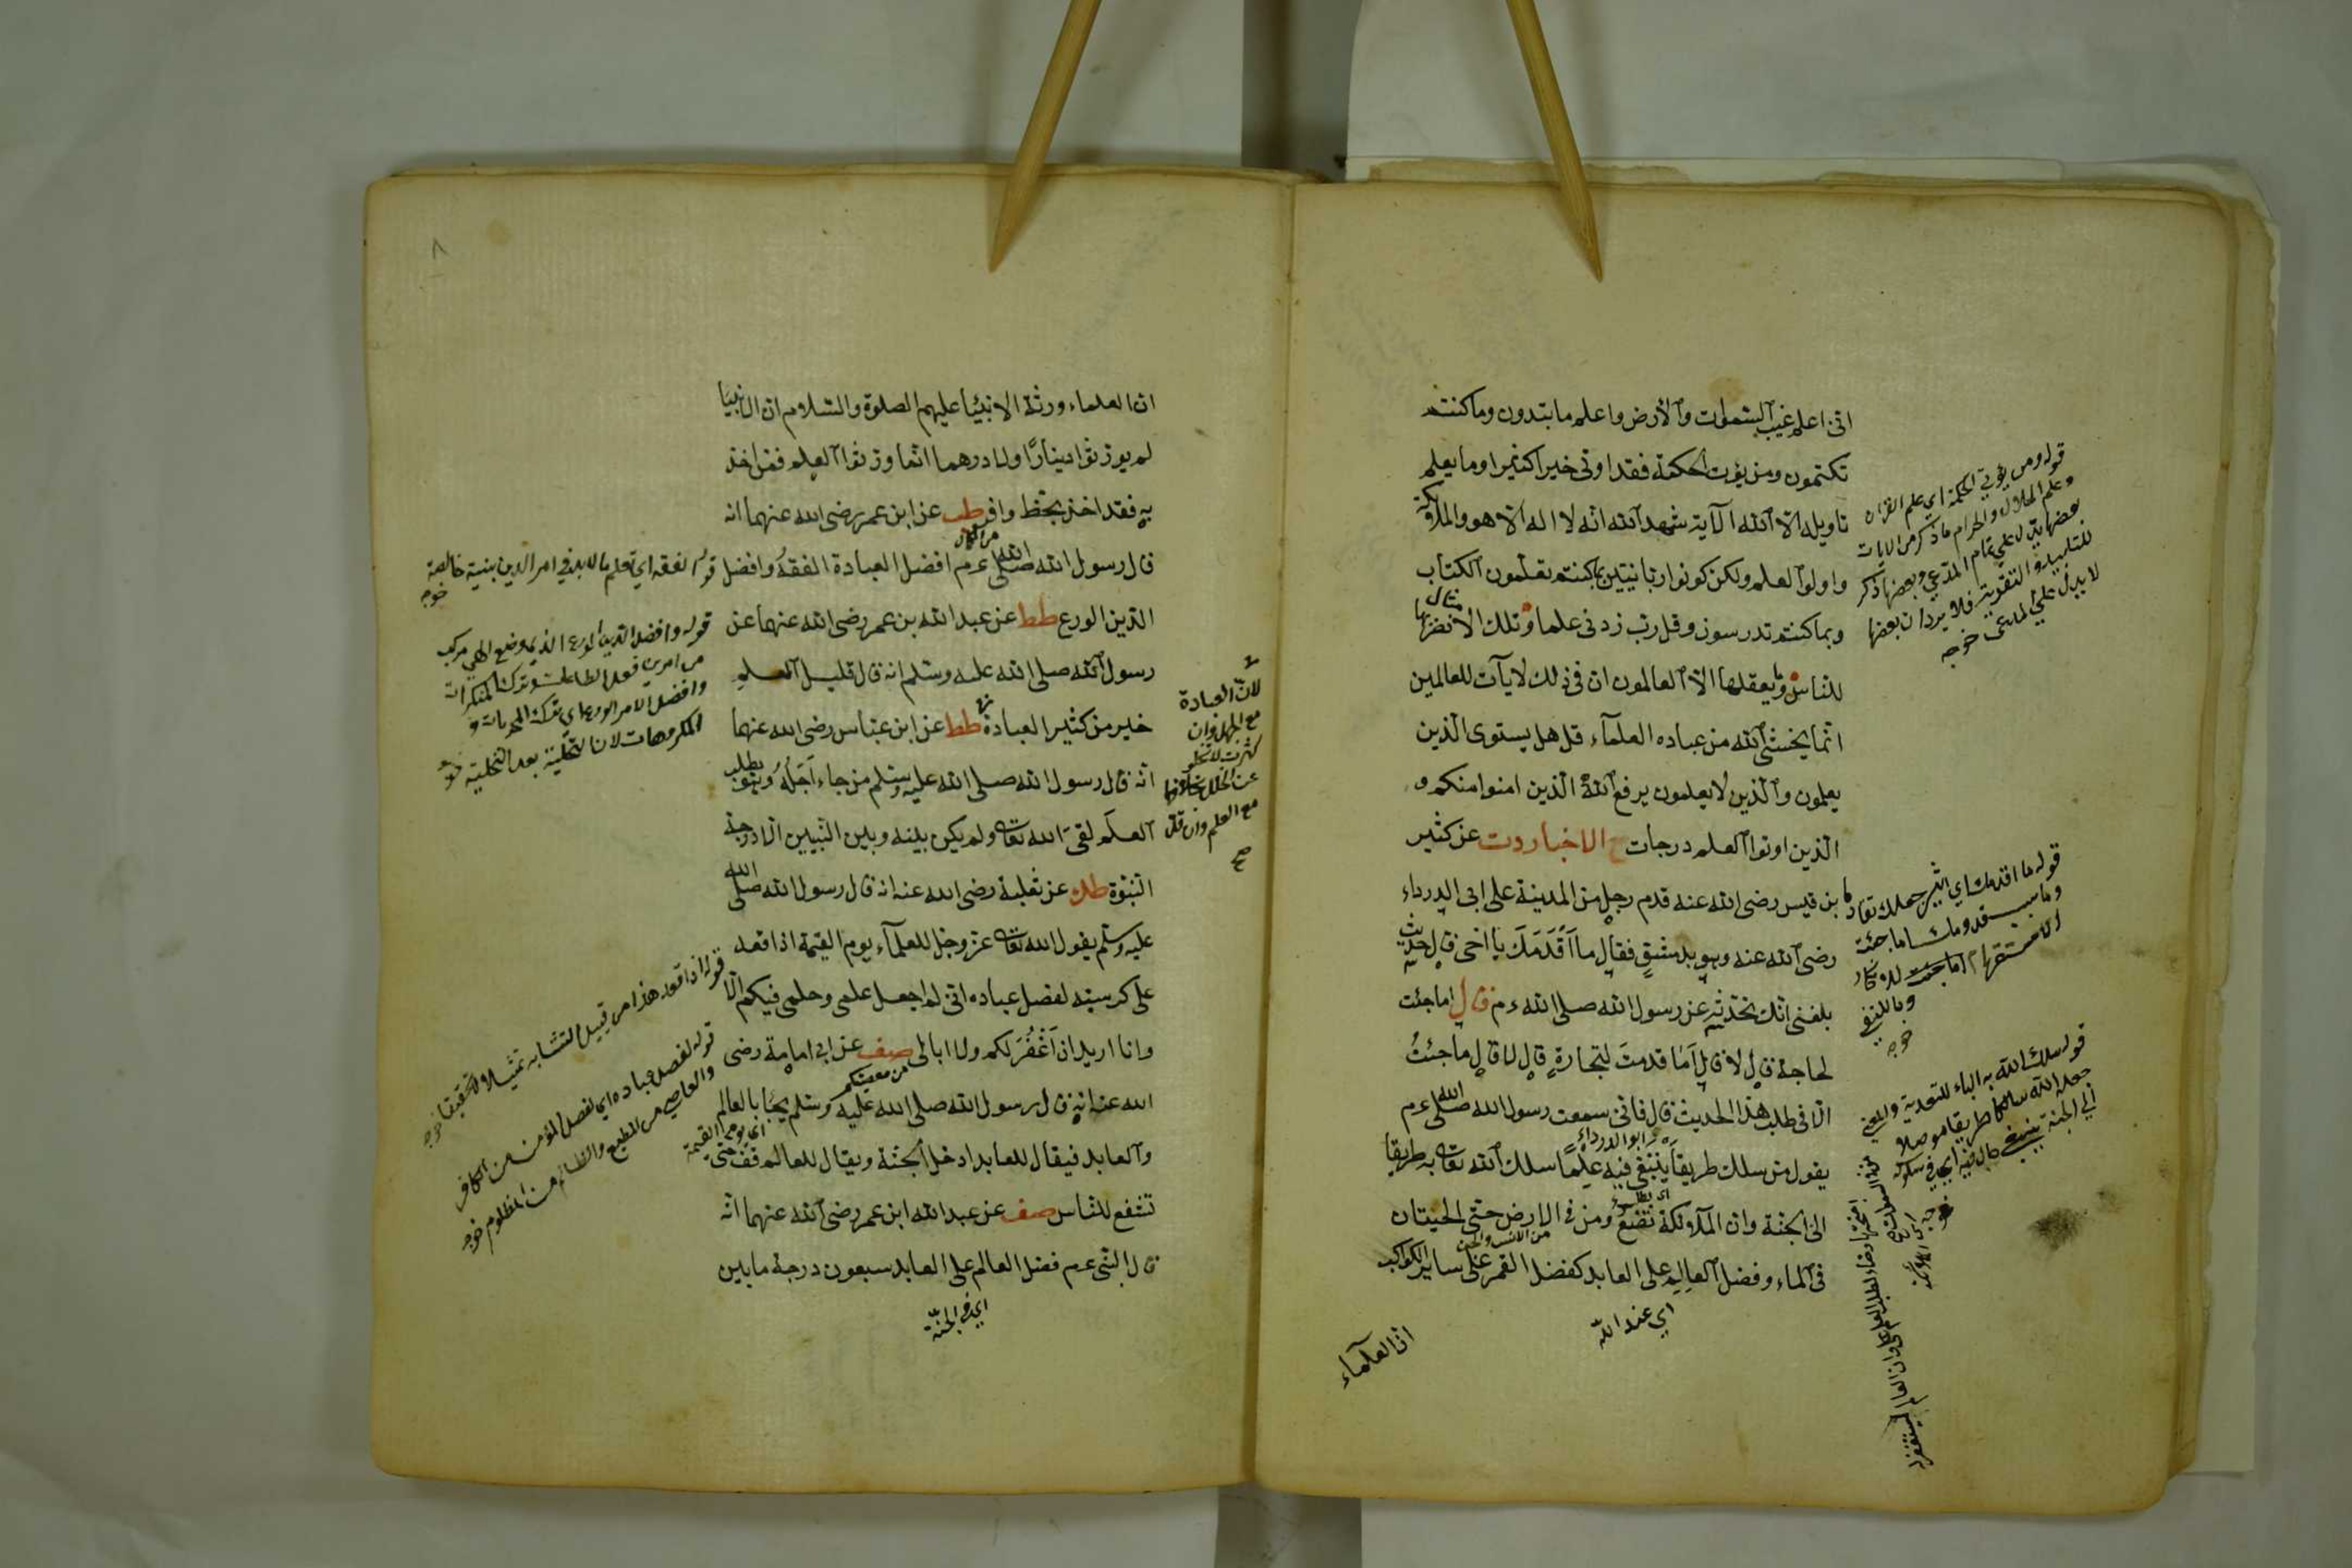 انى اعلم غيب السموات والارض واعلم ما تبدون وما كنتم
تكتمون ومن يؤت الحكمة فقد اوتى خيرا كثيرا وما يعلم
تاويله الا الله الآية شهد الله انه لا اله الا هو والملائكة
واولوا العلم ولكن كونوا ربانيين بما كنتم تعلمون الكتاب
وبما كنتم تدرسون وقل رب زدنى علما وتلك الامثال نضربها
للناس وما يعقلها الا العالمون ان فى ذلك لايات للعالمين
انما يخشى الله من عباده العلماء قل هل يستوى الذين
يعلمون والذين لا يعلمون يرفع الله الذين امنوا منكم و
الذين اوتوا العلم درجات الاخبار دت عن كثير
بن قيس رضى الله عنه قدم رجل من المدينة على ابى الدرداء
رضى الله عنه وهو بدمشق فقال ما اَقْدَمَكَ يا اخى قال حديث
بلغنى انك تحدثه عن رسول الله صلى الله عم قال اما جئت
لحاجة قال لا قال اَمَا قدمتَ لتجارة قال لا قال ما جئتُ
الا فى طلب هذا الحديث قال فانى سمعت رسول الله صلى الله عم
يقول من سلك طريقا يبتغى فيه علمًا سلك الله تعالى به طريقا
الى الجنة وان الملائكة تضع ومن فى الارض حتى الحيتان
فى الماء وفضل العالِمِ على العابد كفضل القمر على ساير الكواكب
اى عند الله
ان العلماء
قوله ومن يؤتى الحكمة اي علم القران
وعلم الحلال والحرام ما ذكر من الايات
بعضها يدل علي تمام المدعي وبعضها ذكر
للتاييد والتقوية فلا يرد ان بعضها
لا يدل علي المدعى خوجه
قوله ما اقدمك اي اي شئ حملك
وما سبب قدومك اما جئت
قوله سلك الله به الباء للتعدية والمعني
جعله الله سالكا طريقا موصلا
الي الجنة
٨
ان العلماء ورثة الانبئيا عليهم الصلوة والسلام ان الانبيا
لم يورثوا دينارًا ولا درهما انما ورثوا العلم فمن اخذ
به فقد اخذ بحظ وافر طب عن ابن عمر رضى الله عنهما انه
قال رسول الله صلى الله عم افضل العبادة الفقهُ وافضل
الدين الورع طط عن عبد الله بن عمر رضى الله عنهما عن
رسول الله صلى الله عليه وسلم انه قال قليل العلمِ
خير من كثير العبادة طط عن ابن عباس رضى الله عنهما
انه قال رسول الله صلى الله عليه وسلم من جاء اَجَلُهُ وهو يطلب
العلم لقىَ الله تعالى ولم يكن بينه وبين النبيين الا درجة
النبوة طك عن ثعلبة رضى الله عنه انه قال رسول الله صلى الله
عليه وسلم يقول الله تعالى عز وجل للعلماء يوم القيمة اذا قعد
على كرسيه لفصل عباده انى لم اجعل علمى وحلمى فيكم الا
وانا اريد ان اَغْفُرَ لكم ولا ابالى صف عن ابى امامة رضى
الله عنه انه قال رسول الله صلى الله عليه وسلم يجاء بالعالم
والعابد فيقال للعابد ادخل الجنة ويقال للعالم قف حتى
تشفع للناس صف عن عبد الله ابن عمر رضى الله عنهما انه
قال النبى عم فضل العالم على العابد سبعون درجة ما بين
اي في الجنّة
اى يوم القيمة
لانّ العبادة
مع الجهل وان
كثرت لا تخلو
عن الخلل
مع العلم وان قلّ
قوله الفقه اي تعلم ما لابد في امر الدين بنية خالصة
خوجه
قوله وافضل الدين الورع الدين وضع الهي مركب
من امرين فعل الطاعات وترك المنكرات
وافضل الامر الورع اي ترك المحرمات و
المكروهات لان التحلية بعد التخلية
قوله اذا قعد هذا من قبيل التشابه تمثيلا وتحقيقا خوجه
قوله لفصل عباده اي لفصل المؤمن من الكافر
والعاصي من المطيع والظالم من المظلوم خوجه